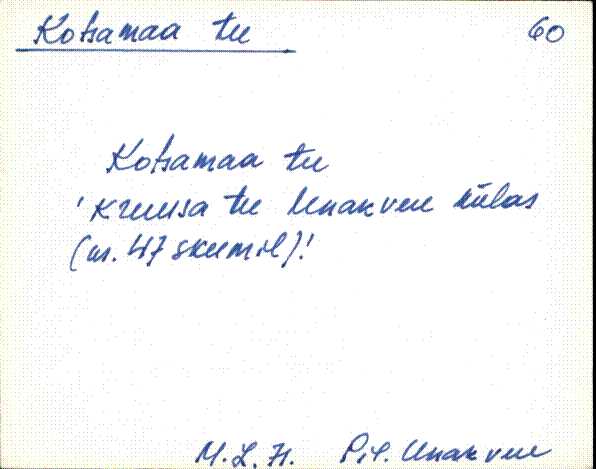 Kotsamaa tee 60
Kotsamaa tee
'Kruusa tee Unakvere külas
(nr. 47 skeemil)!
M.L.H. Pil. Unakvere